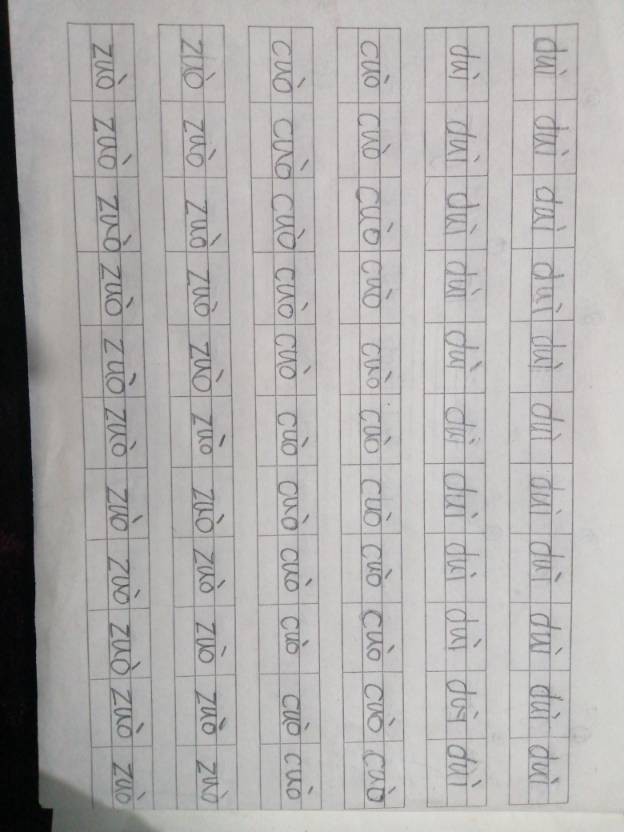 duì duì duì duì duì duì duì duì duì duì duì
duì duì duì duì duì duì duì duì duì duì duì
cuò cuò cuò cuò cuò cuò cuò cuò cuò cuò cuò
cuò cuò cuò cuò cuò cuò cuò cuò cuò cuò cuò
zuò zuò zuò zuò zuò zuò zuò zuò zuò zuò zuò
zuò zuò zuò zuò zuò zuò zuò zuò zuò zuò zuò